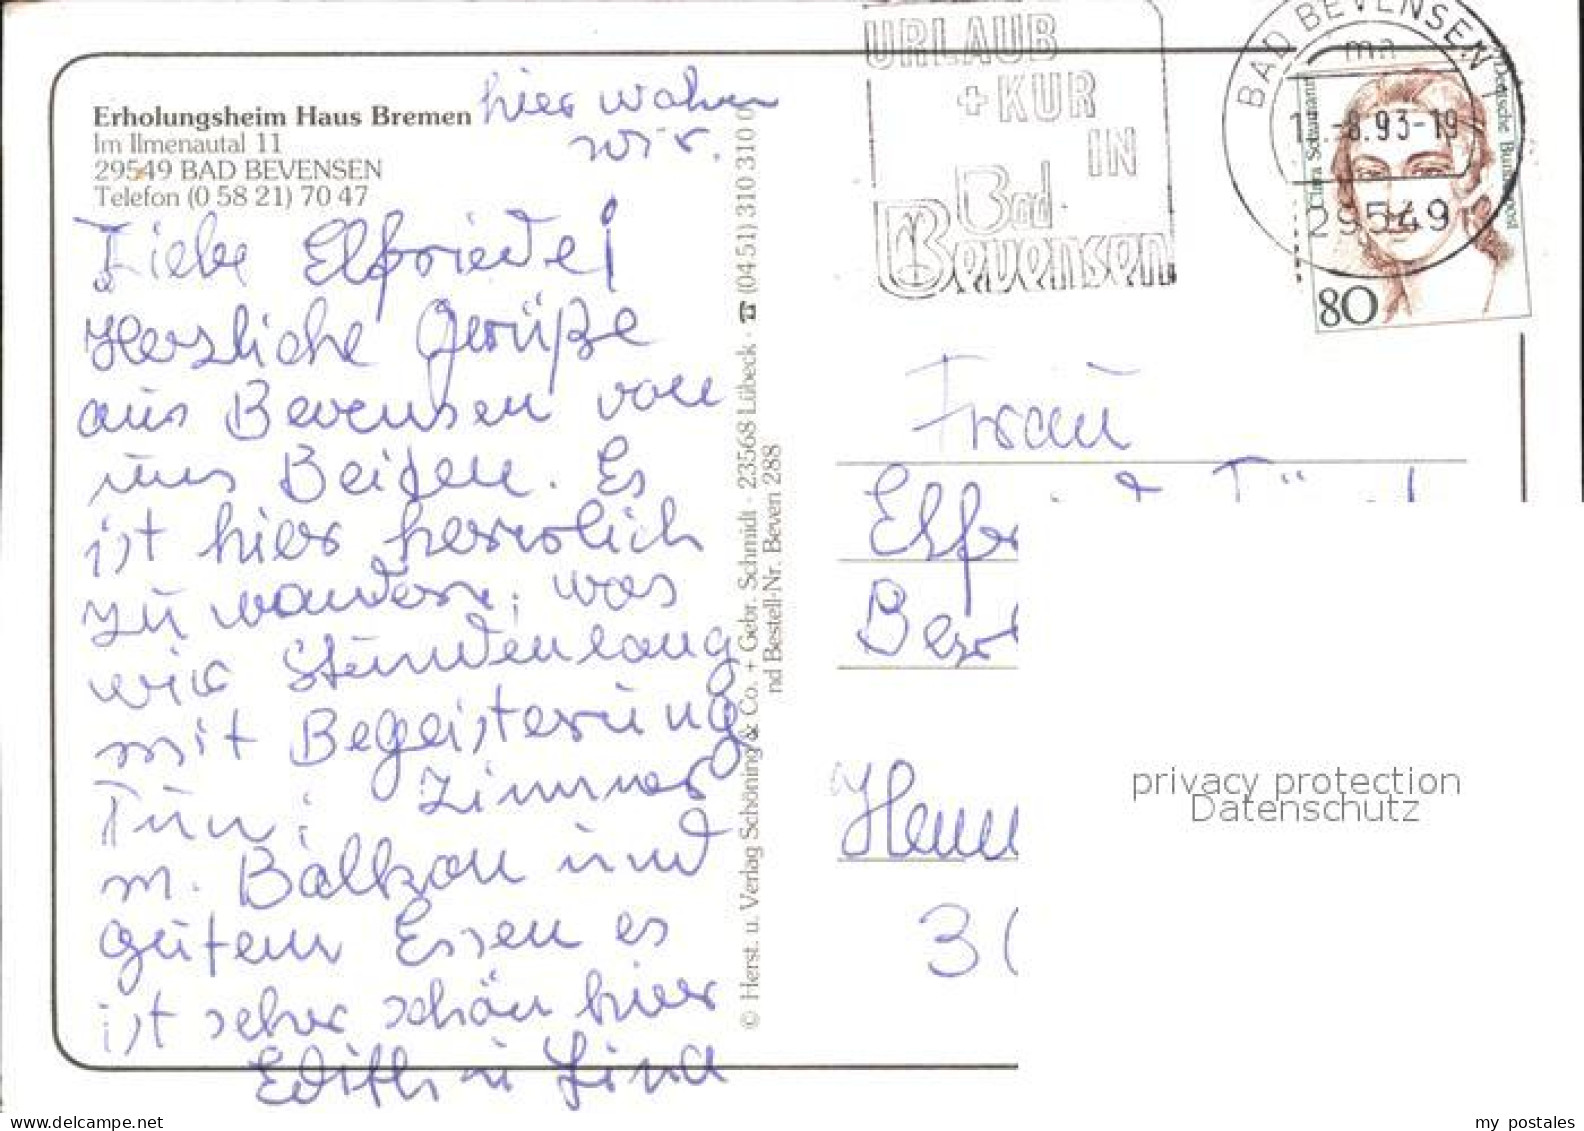 Erholungsheim Haus Bremen
Im Ilmenautal 11
29549 BAD BEVENSEN
Telefon (0 58 21) 70 47
hier wohnen
wir.
Liebe Elfriede!
Herzliche Grüße
aus Bevensen von
uns Beiden. Es
ist hier herrlich
zu wandern, was
wir Stundenlang
mit Begeisterung
Tun; Zimmer
m. Balkon und
gutem Essen es
ist sehr schön hier
Edith u Lina
© Herst. u. Verlag Schöning & Co. + Gebr. Schmidt · 23568 Lübeck · ☎ (04 51) 310 310 0
nd Bestell-Nr. Beven 288
URLAUB
+ KUR
IN
Bad
Bevensen
BAD BEVENSEN 1
ma
-8.93-19
29549
Clara Schumann
Deutsche Bundespost
80
Frau
privacy protection
Datenschutz
www.delcampe.net
my_postales